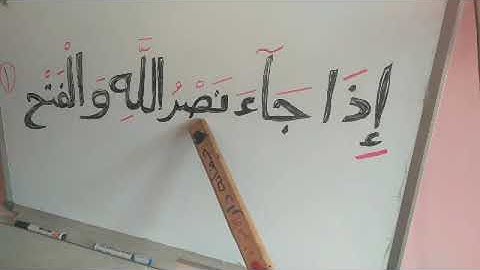 إِذَا جَآءَ نَصْرُ اللَّهِ وَالْفَتْح ١